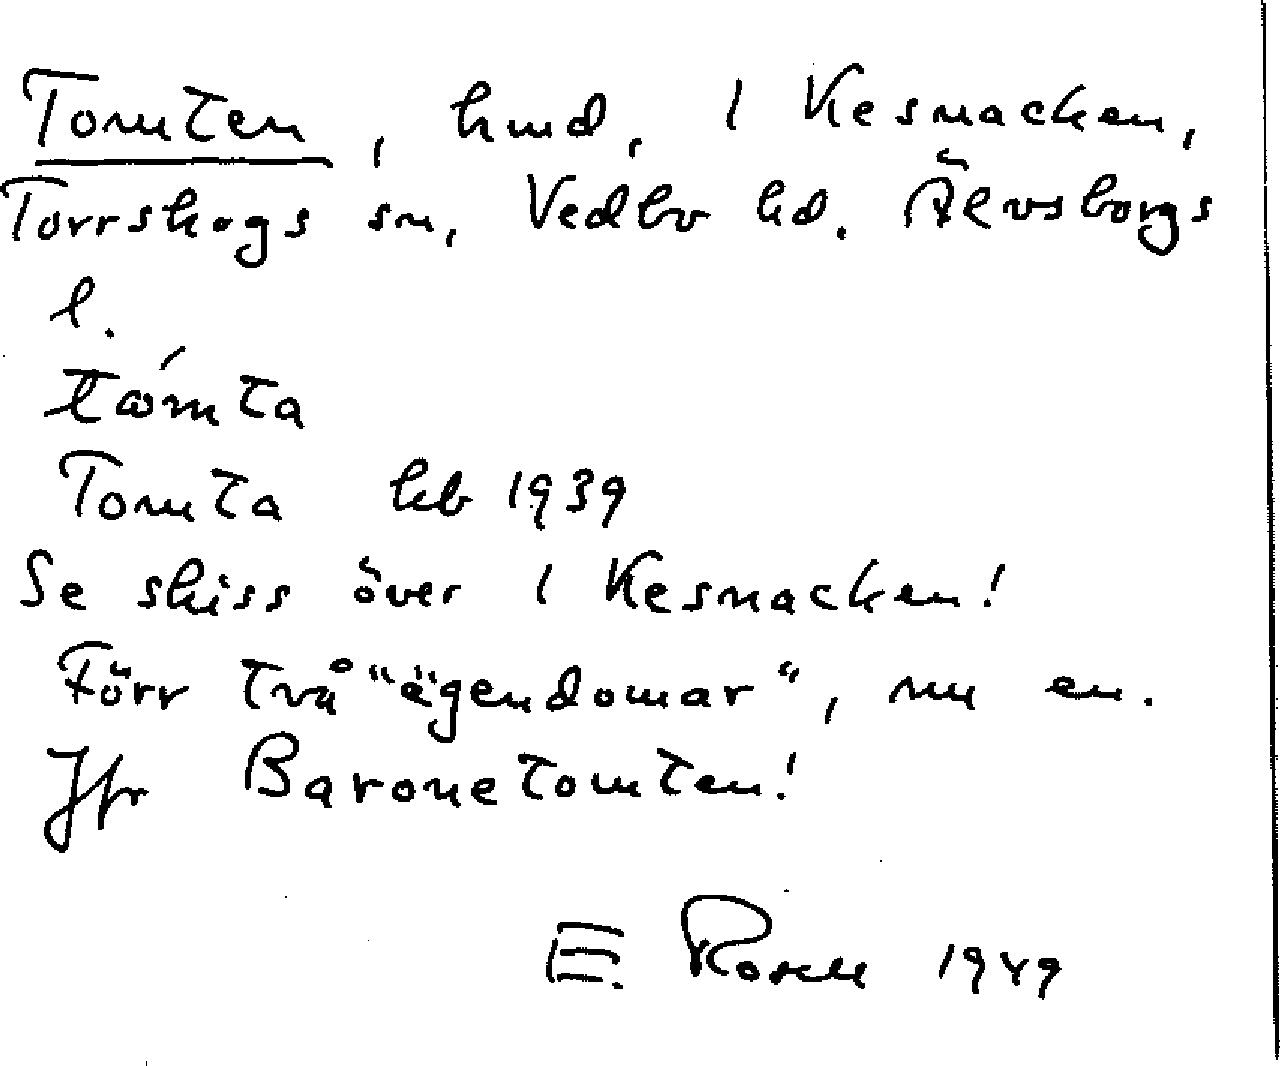 Tomten, hmd, 1 Kesnacken,
Torrskogs sn, Vedbo hd. Älvsborgs
l.
tómta
Tomta kb 1939
Se skiss över 1 Kesnacken!
Förr två "ägendomar", nu en.
Jfr Baronetomten!
E. Rosell 1949